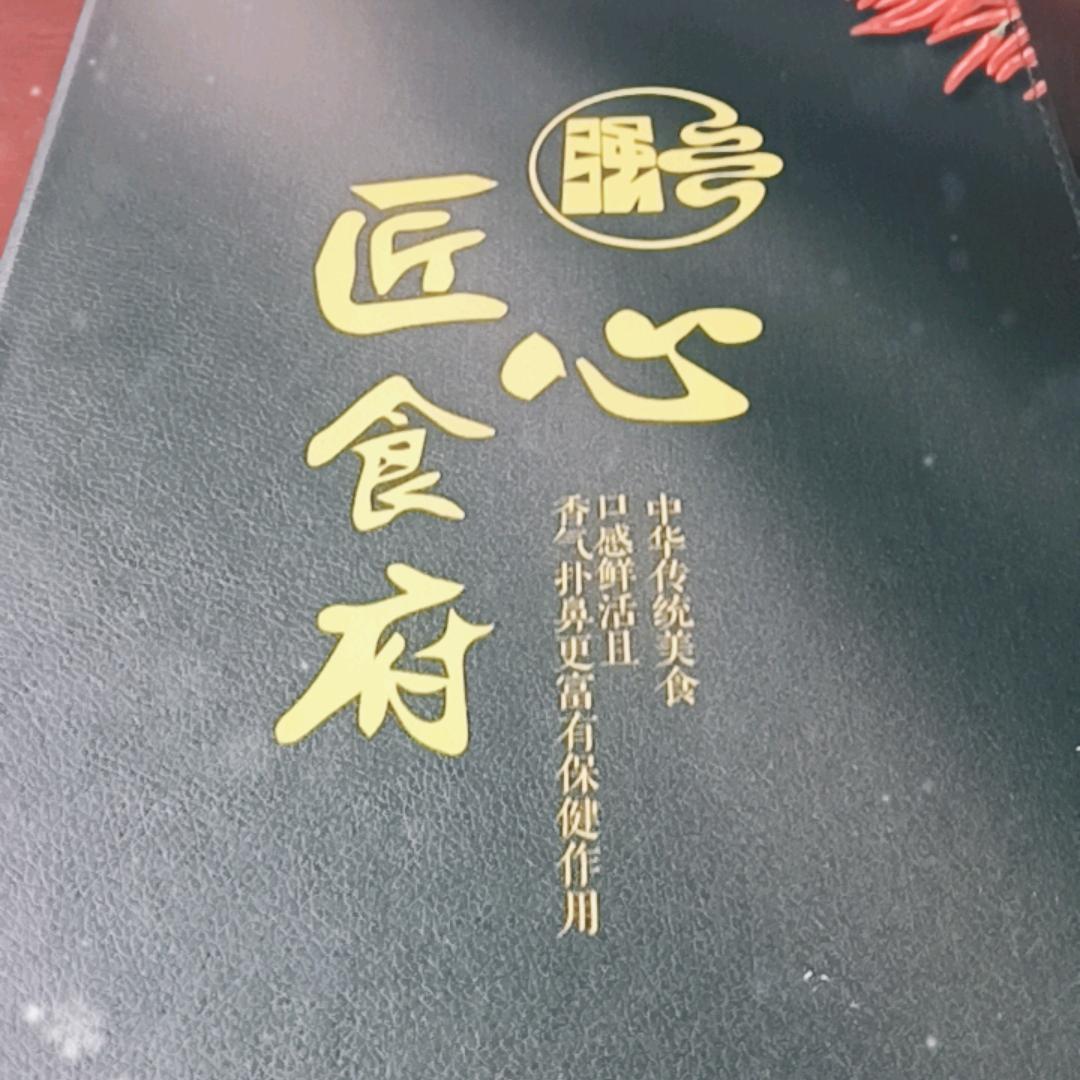 强
匠心食府
中华传统美食
口感鲜活且
香气扑鼻更富有保健作用